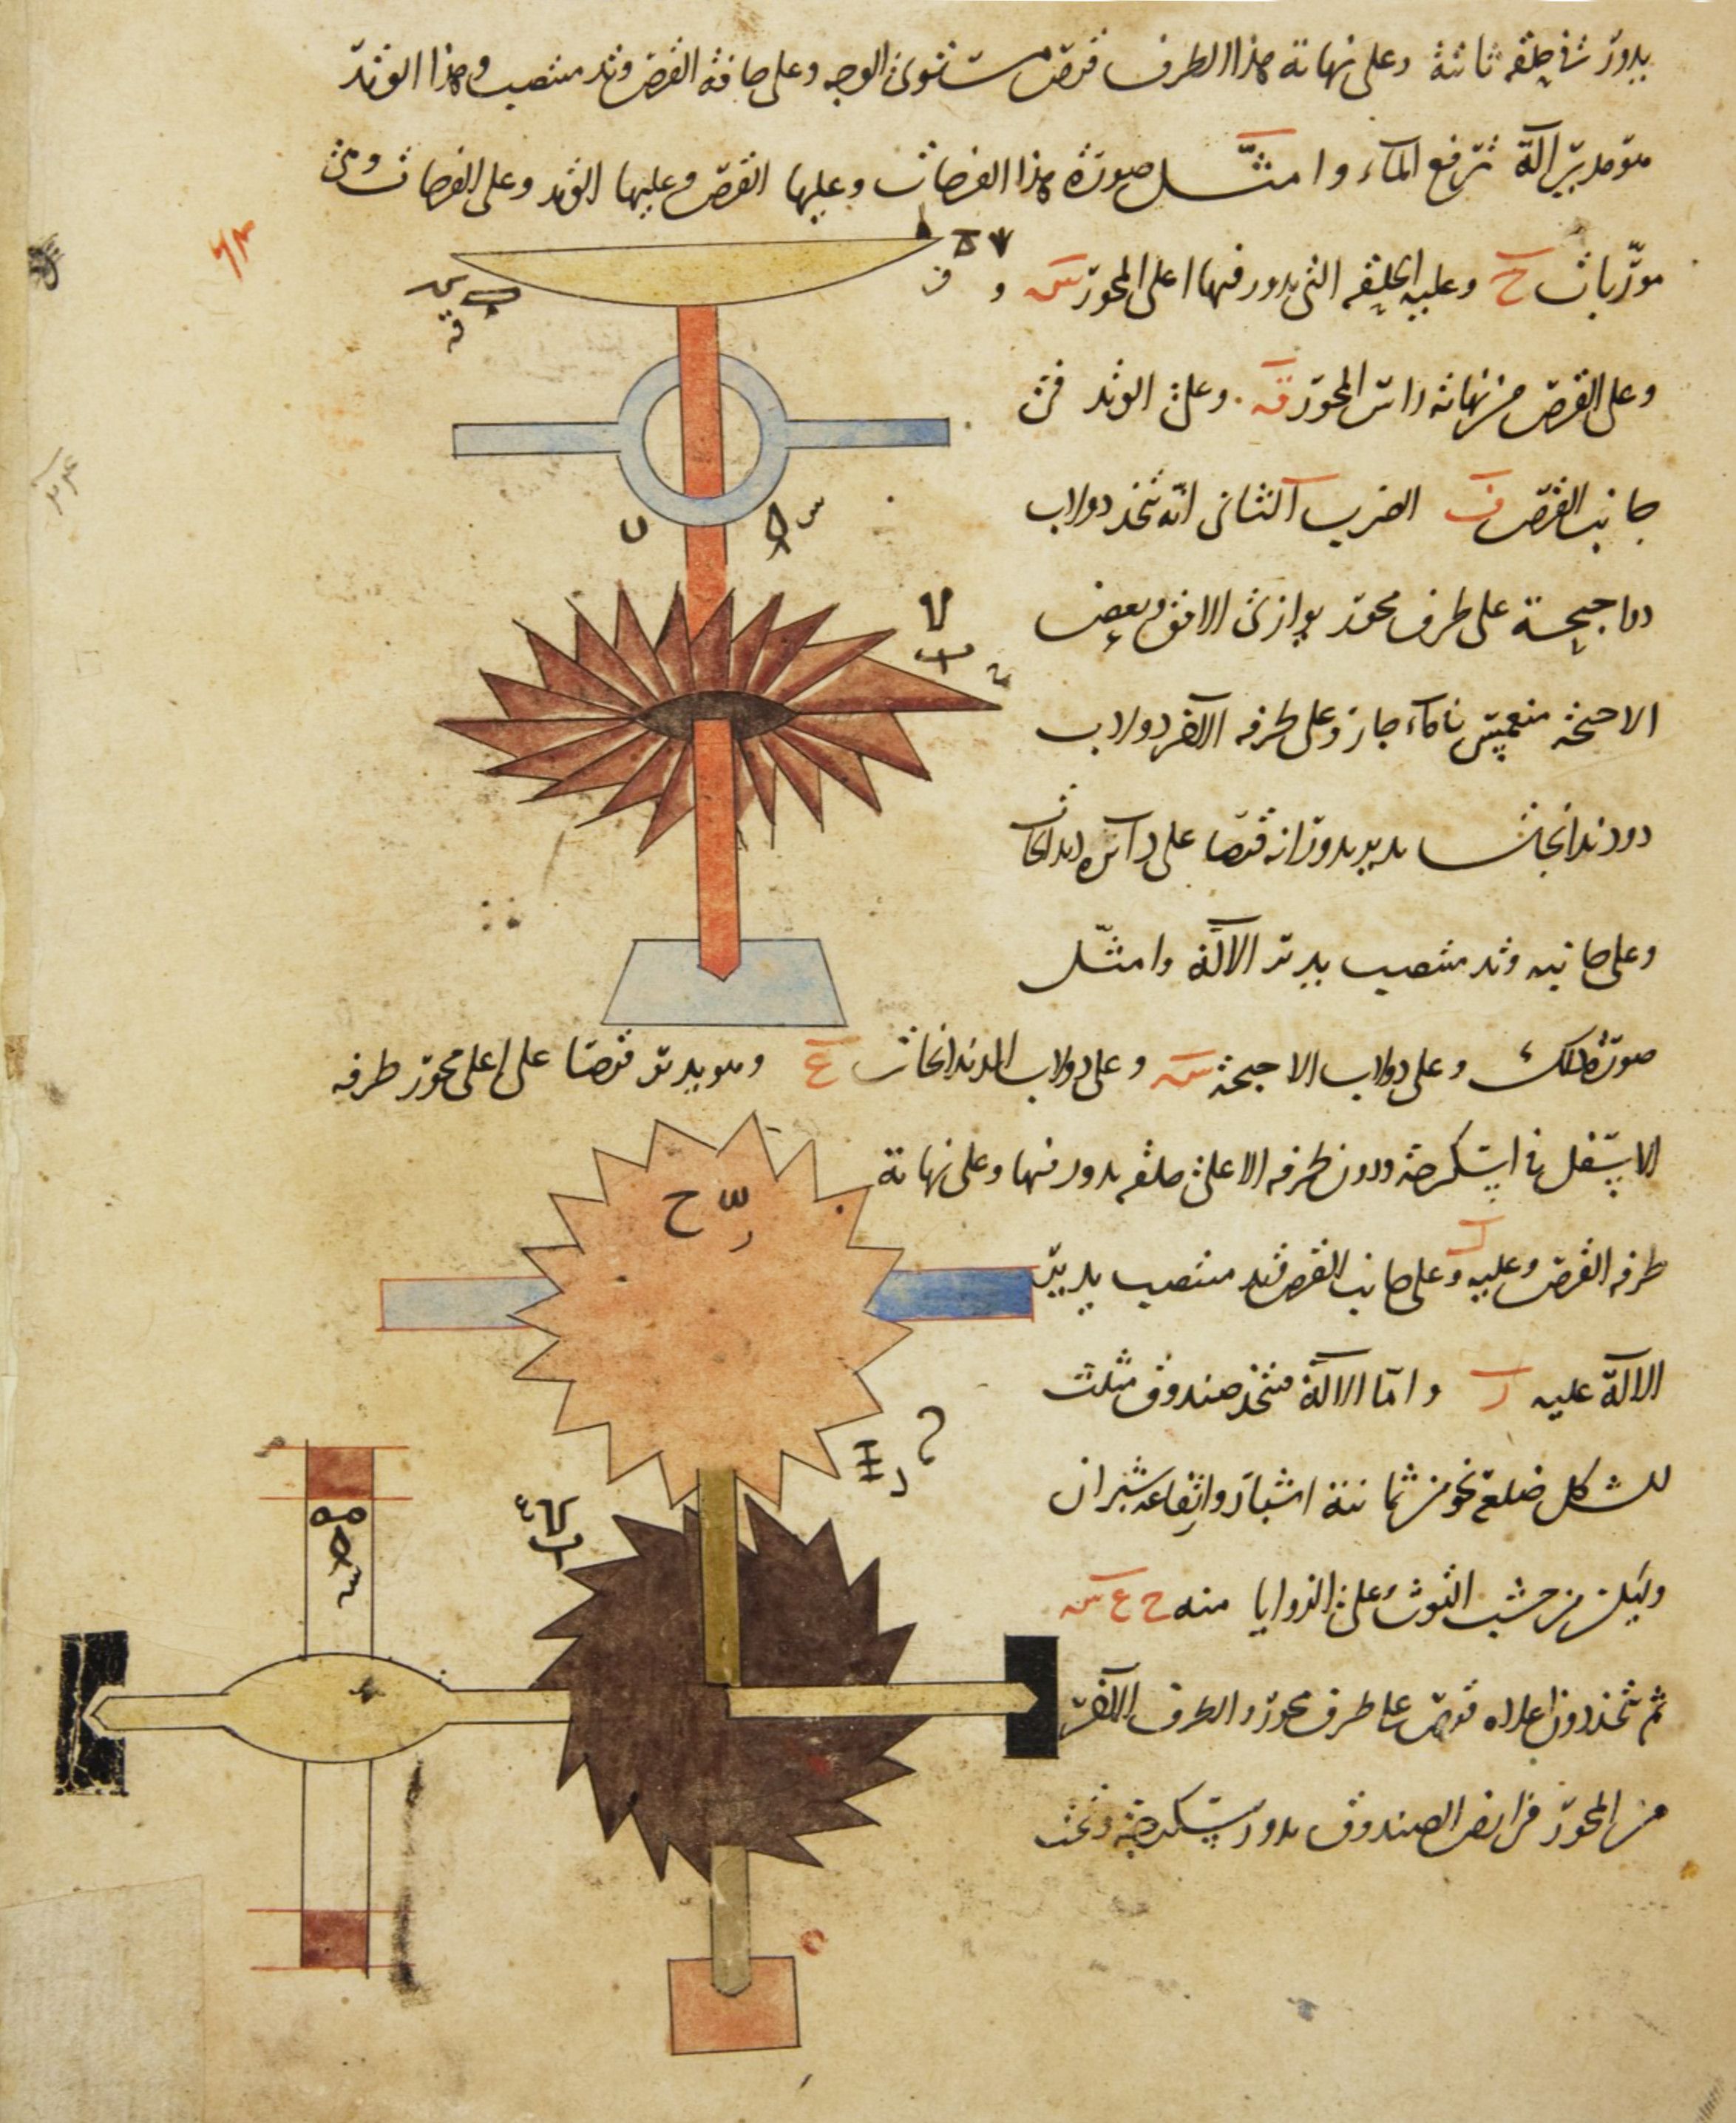 يدور في حلقة ثابتة وعلى نهاية هذا الطرف قرص مستوى الوجه وعلى حافة القرص وتد منتصب وهذا الوتد
هو مدير آلة ترفع الماء وامثل صورة هذا الفرضات وعليها القرص وعليها الوتد وعلى الفرضات وهى
موربات ح وعليه الحلقه التى يدور فيها اعلى المحور س و
وعلى القرص من نهاية راس المحور ق وعلى الوتد فى
جانب القرص ف الضرب الثانى انه تتخذ دولاب
دو اجنحة على طرف محور يوازى الافق وبعض
الاجنحة منغمس بماء جار وعلى طرفه الآخر دولاب
دو دندانجات يدير بدورانه قرصا على دايره دندانجات
وعلى جانبه وتد منتصب يدير الآلة وامثل
صورة ذلك وعلى دولاب الاجنحة س وعلى دولاب الدندانجات ع وهو يدير قرصا على اعلى محور طرفه
الاسفل فى اسكرجة ودون طرفه الاعلى حلقه يدور فيها وعلى نهاية
طرفه القرص وعليه وعلى جانب القرص وتد منتصب يدير
الآلة عليه ر واما الآلة فتتخذ صندوق مثلث
الشكل ضلعه نحو من ثمانية اشبار وارتفاعه شبران
وليكن من خشب التوث وعلى الزوايا منه ح ع س
ثم تتخذ دون اعلاه قرص على طرف محور والطرف الآخر
من المحور فى ارض الصندوق يدور بسكرجة وتحت
س
ح